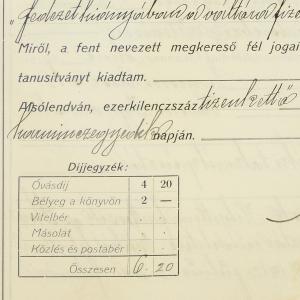 „fedezet hiányában a váltára fize
Miről, a fent nevezett megkereső fél jogai
tanusítványt kiadtam.
Alsólendván, ezerkilenczszáz tizenkettő
harminczegyedik napján.
Díjjegyzék:
Óvásdíj 4 20
Bélyeg a könyvön 2 —
Vitelbér . .
Másolat . .
Közlés és postabér . .
Összesen 6 . 20